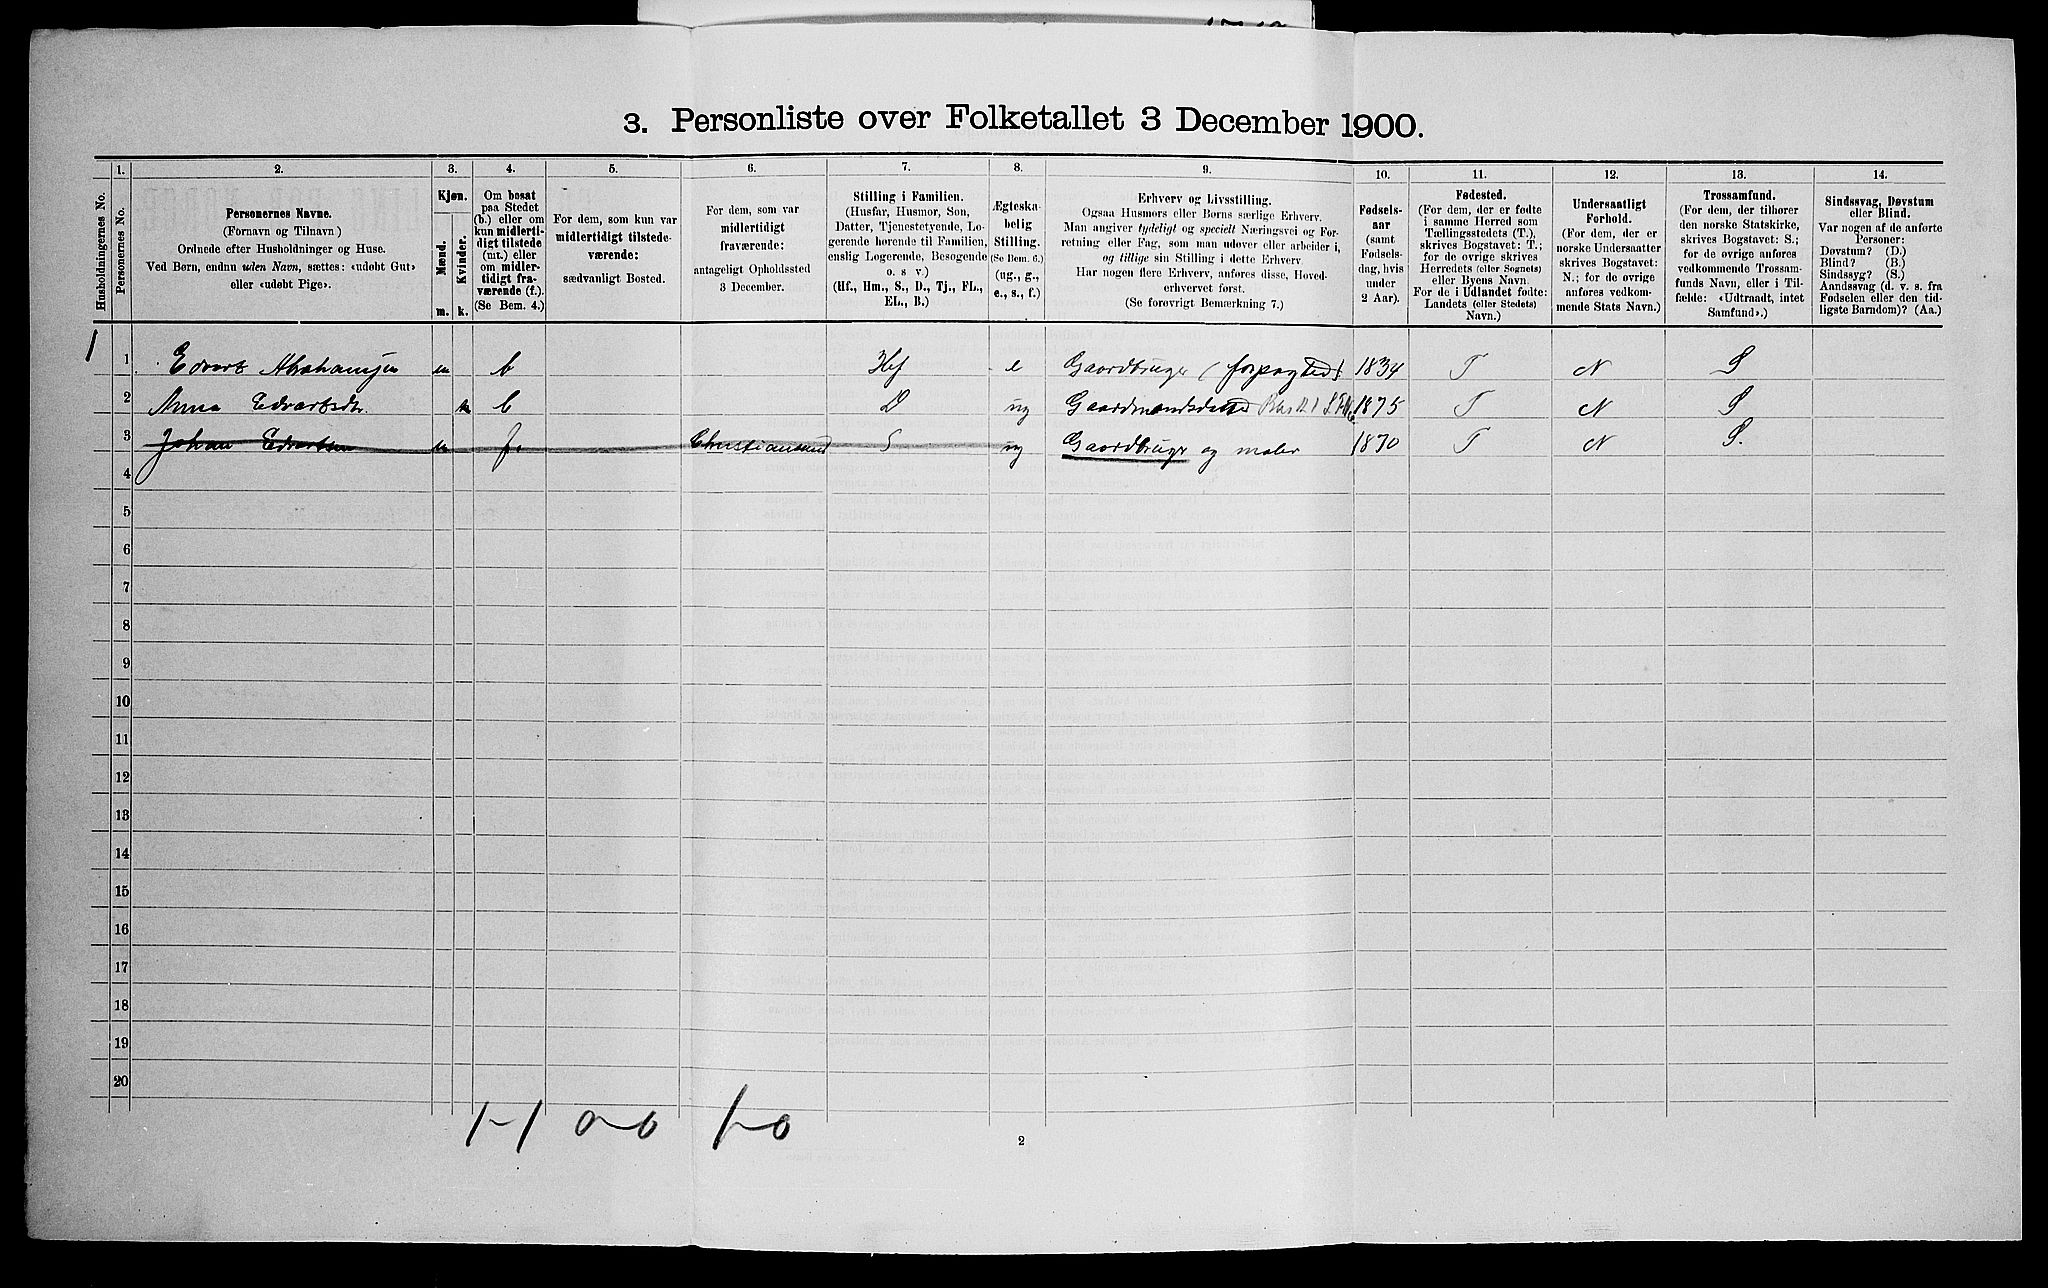 3. Personliste over Folketallet 3 December 1900.
1. 2. 3. 4. 5. 6. 7. 8. 9. 10. 11. 12. 13. 14.
Husholdningernes No.
Personernes No.
Personernes Navne.
(Fornavn og Tilnavn)
Ordnede efter Husholdninger og Huse.
Ved Børn, endnu uden Navn, sættes: «udøbt Gut»
eller «udøbt Pige».
Kjøn.
Mænd.
Kvinder.
m. k.
Om bosat
paa Stedet
(b.) eller om
kun midlerti-
digt tilstede
(mt.) eller
om midler-
tidigt fra-
værende (f.).
(Se Bem. 4.)
For dem, som kun var
midlertidigt tilstede-
værende:
sædvanligt Bosted.
For dem, som var
midlertidigt
fraværende:
antageligt Opholdssted
3 December.
Stilling i Familien.
(Husfar, Husmor, Søn,
Datter, Tjenestetyende, Lo-
gerende hørende til Familien,
enslig Logerende, Besøgende
o. s v.)
(Hf., Hm., S., D., Tj., FL.,
EL., B.)
Ægteska-
belig
Stilling.
(Se Bem. 6.)
(ug., g.,
e., s., f.)
Erhverv og Livsstilling.
Ogsaa Husmors eller Børns særlige Erhverv.
Man angiver tydeligt og specielt Næringsvei og For-
retning eller Fag, som man udøver eller arbeider i,
og tillige sin Stilling i dette Erhverv.
Har nogen flere Erhverv, anføres disse, Hoved-
erhvervet først.
(Se forøvrigt Bemærkning 7.)
Fødsels-
aar
(samt
Fødsels-
dag, hvis
under
2 Aar).
Fødested.
(For dem, der er fødte
i samme Herred som
Tællingsstedets (T.),
skrives Bogstavet: T.;
for de øvrige skrives
Herredets (eller Sognets)
eller Byens Navn.
For de i Udlandet fødte:
Landets (eller Stedets)
Navn.)
Undersaatligt
Forhold.
(For dem, der er
norske Undersaatter
skrives Bogstavet:
N.; for de øvrige
anføres vedkom-
mende Stats Navn.)
Trossamfund.
(For dem, der tilhører
den norske Statskirke,
skrives Bogstavet: S.;
for de øvrige anføres
vedkommende Trossam-
funds Navn, eller i Til-
fælde: «Udtraadt, intet
Samfund».)
Sindssvag, Døvstum
eller Blind.
Var nogen af de anførte
Personer:
Døvstum? (D.)
Blind? (B.)
Sindssyg? (S.)
Aandssvag (d. v. s. fra
Fødselen eller den tid-
ligste Barndom)? (Aa.)
1 1 Edvart Abrahamsen m b Hf e Gaardbruger (forpagted) 1834 T N S
2 Anna Edvartsdr. k b D ug Gaardmandsdatter 1875 T N S
3 Johan Edvartsen m f. Christiansund S ug Gaardbruger og maler 1870 T N S.
4
5
6
7
8
9
10
11
12
13
14
15
16
17
18
19
20
1-1 0-0 1-0
2